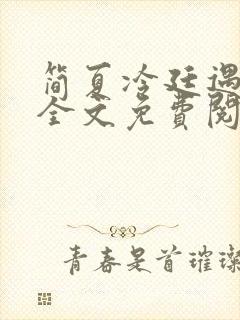 简夏冷廷遇
全文免費閱
青春是首璀璨